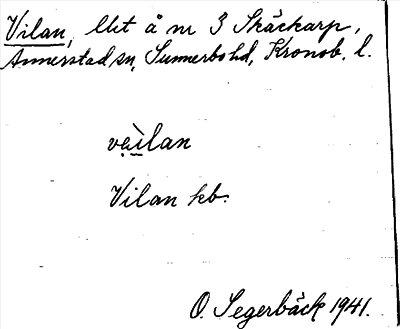 Vilan, lht å nr 3 Skäckarp,
Annerstad sn, Sunnerbo hd, Kronob. l.
vẹìlan
Vilan kb.
O. Segerbäck 1941.